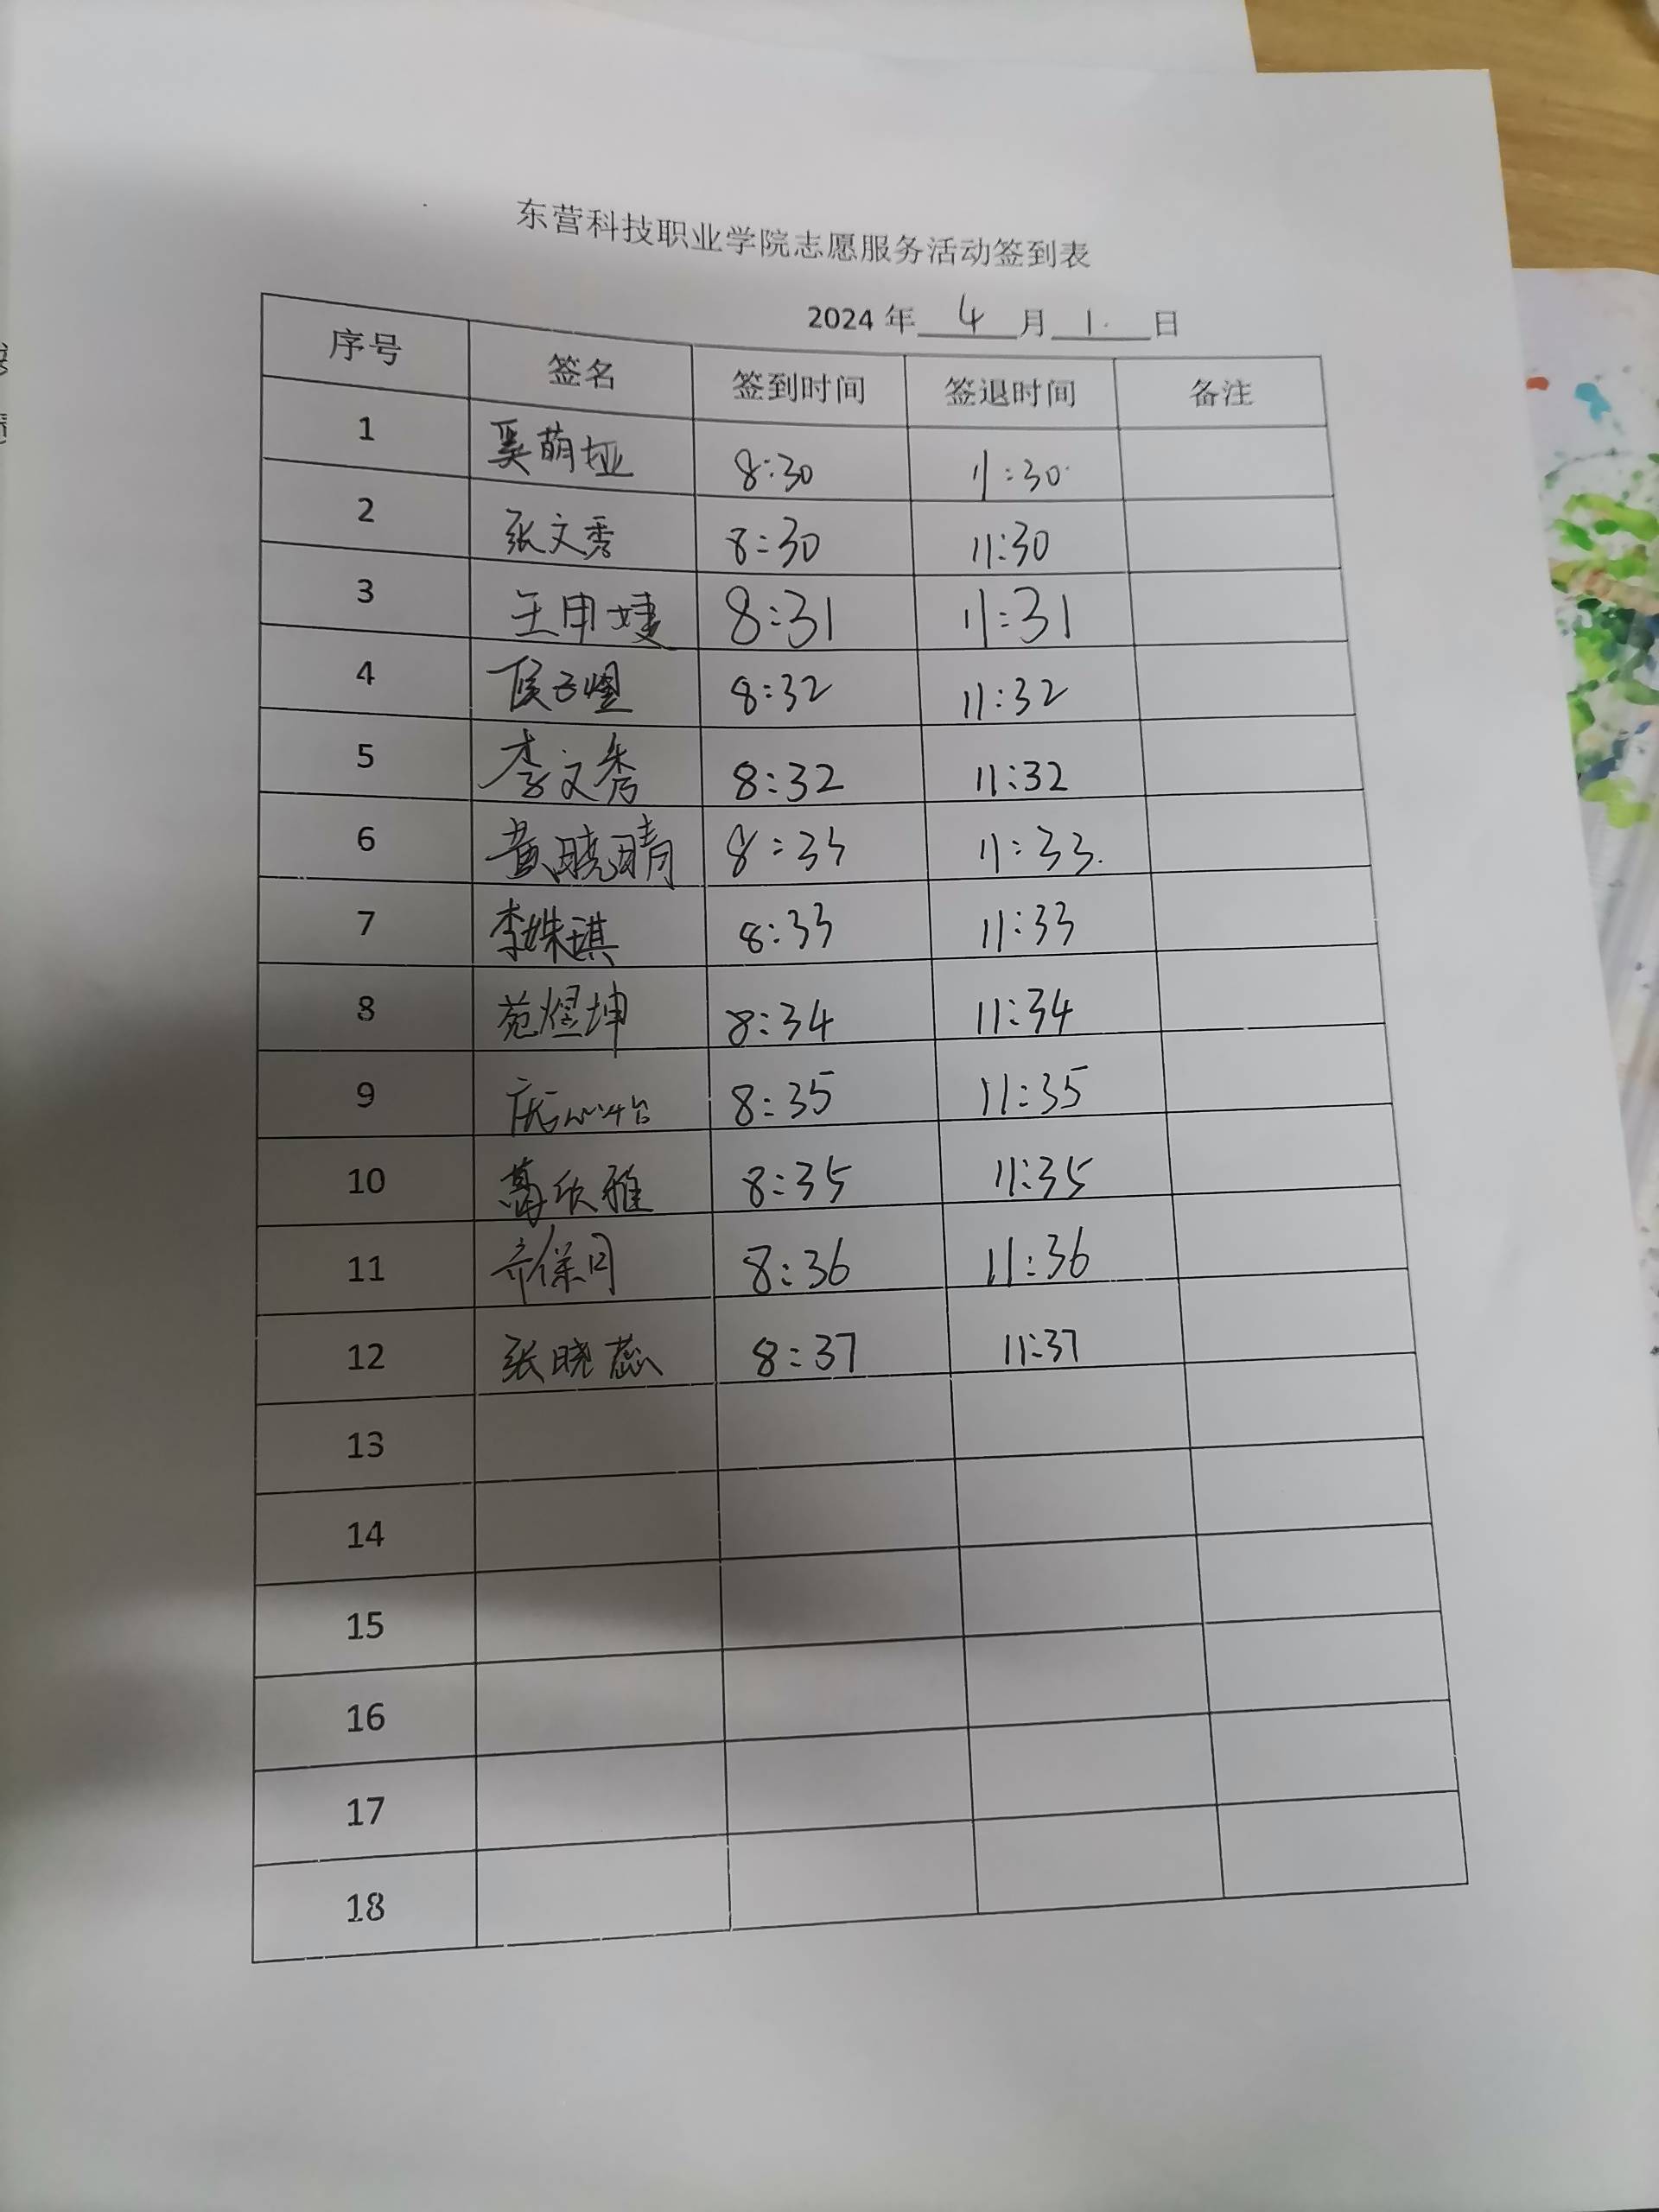 东营科技职业学院志愿服务活动签到表
2024 年 4 月 1 日
序号 签名 签到时间 签退时间 备注
1 奚萌垭 8:30 11:30
2 张文秀 8:30 11:30
3 王申婕 8:31 11:31
4 侯 8:32 11:32
5 李文秀 8:32 11:32
6 黄晓晴 8:33 11:33
7 李姝琪 8:33 11:33
8 苑煜坤 8:34 11:34
9 8:35 11:35
10 葛欣雅 8:35 11:35
11 齐保同 8:36 11:36
12 张晓蕊 8:37 11:37
13
14
15
16
17
18